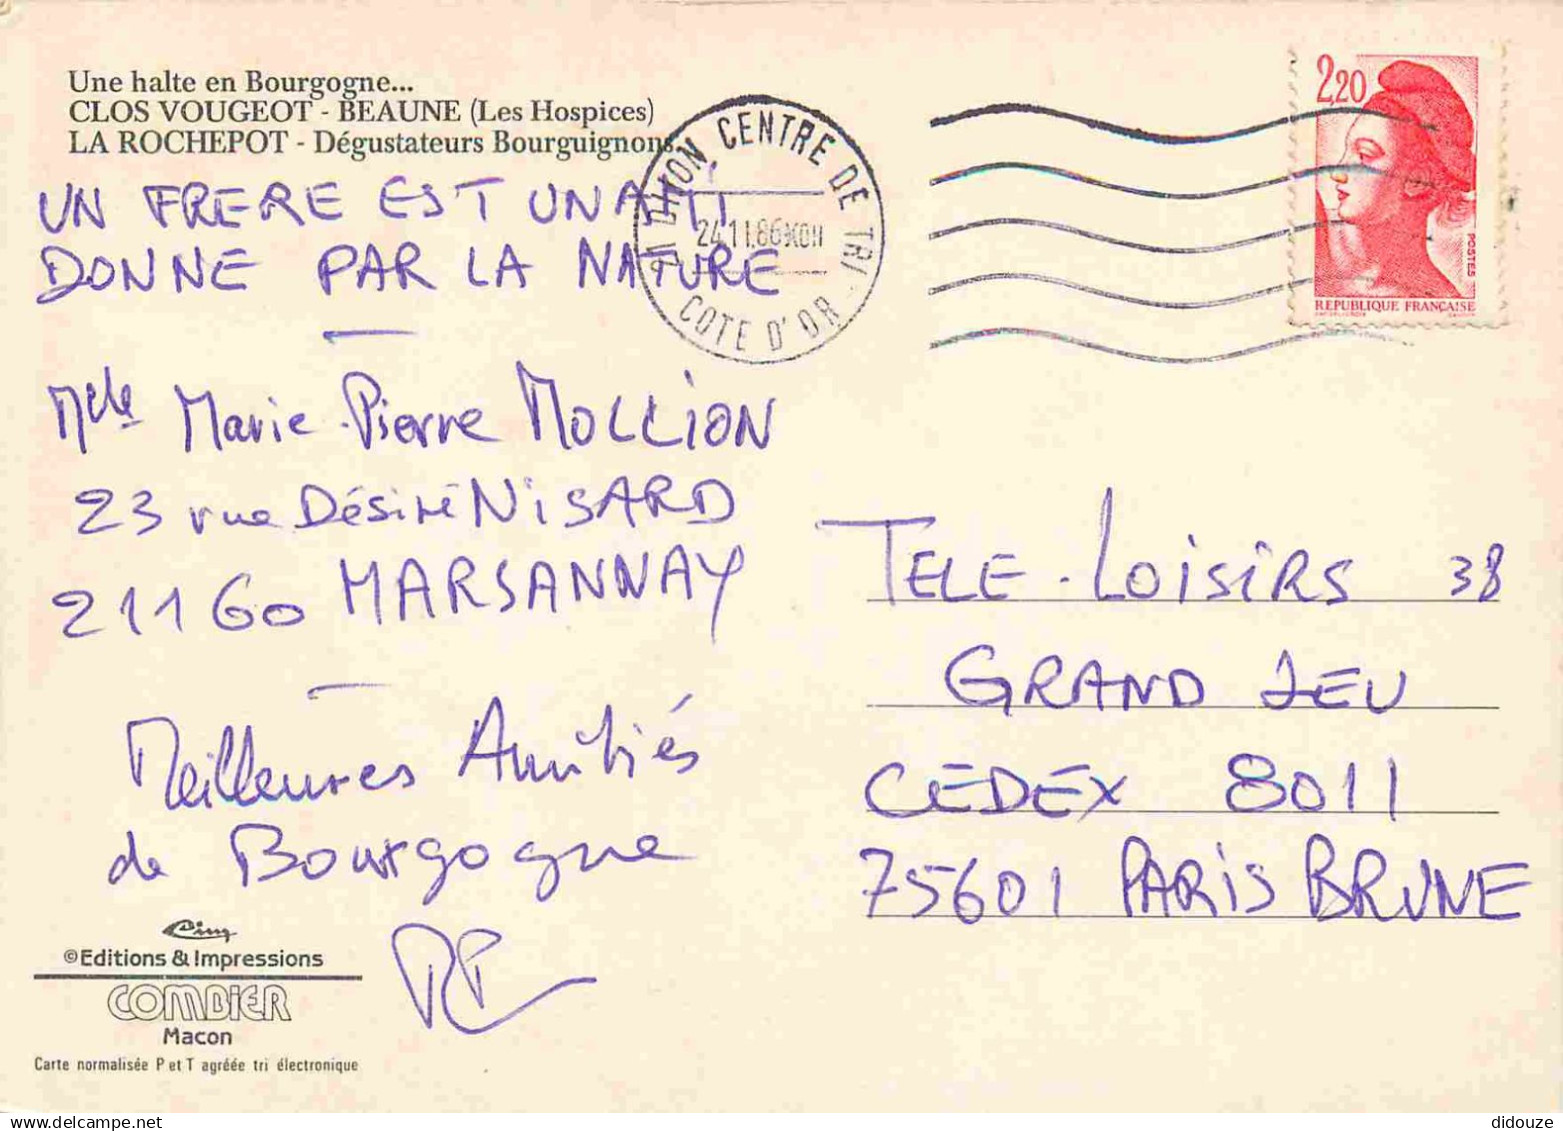 Une halte en Bourgogne...
CLOS VOUGEOT - BEAUNE (Les Hospices)
LA ROCHEPOT - Dégustateurs Bourguignons
UN FRERE EST UN AMI
DONNE PAR LA NATURE
Melle Marie-Pierre MOLLION
23 rue Désiré NISARD
21160 MARSANNAY
Meilleures Amitiés
de Bourgogne
©Editions & Impressions
COMBIER
Macon
Carte normalisée P et T agréée tri électronique
21 DIJON CENTRE DE TRI
24.11.86
COTE D'OR
2,20
POSTES
REPUBLIQUE FRANÇAISE
TELE-LOISIRS 38
GRAND JEU
CEDEX 8011
75601 PARIS BRUNE
didouze